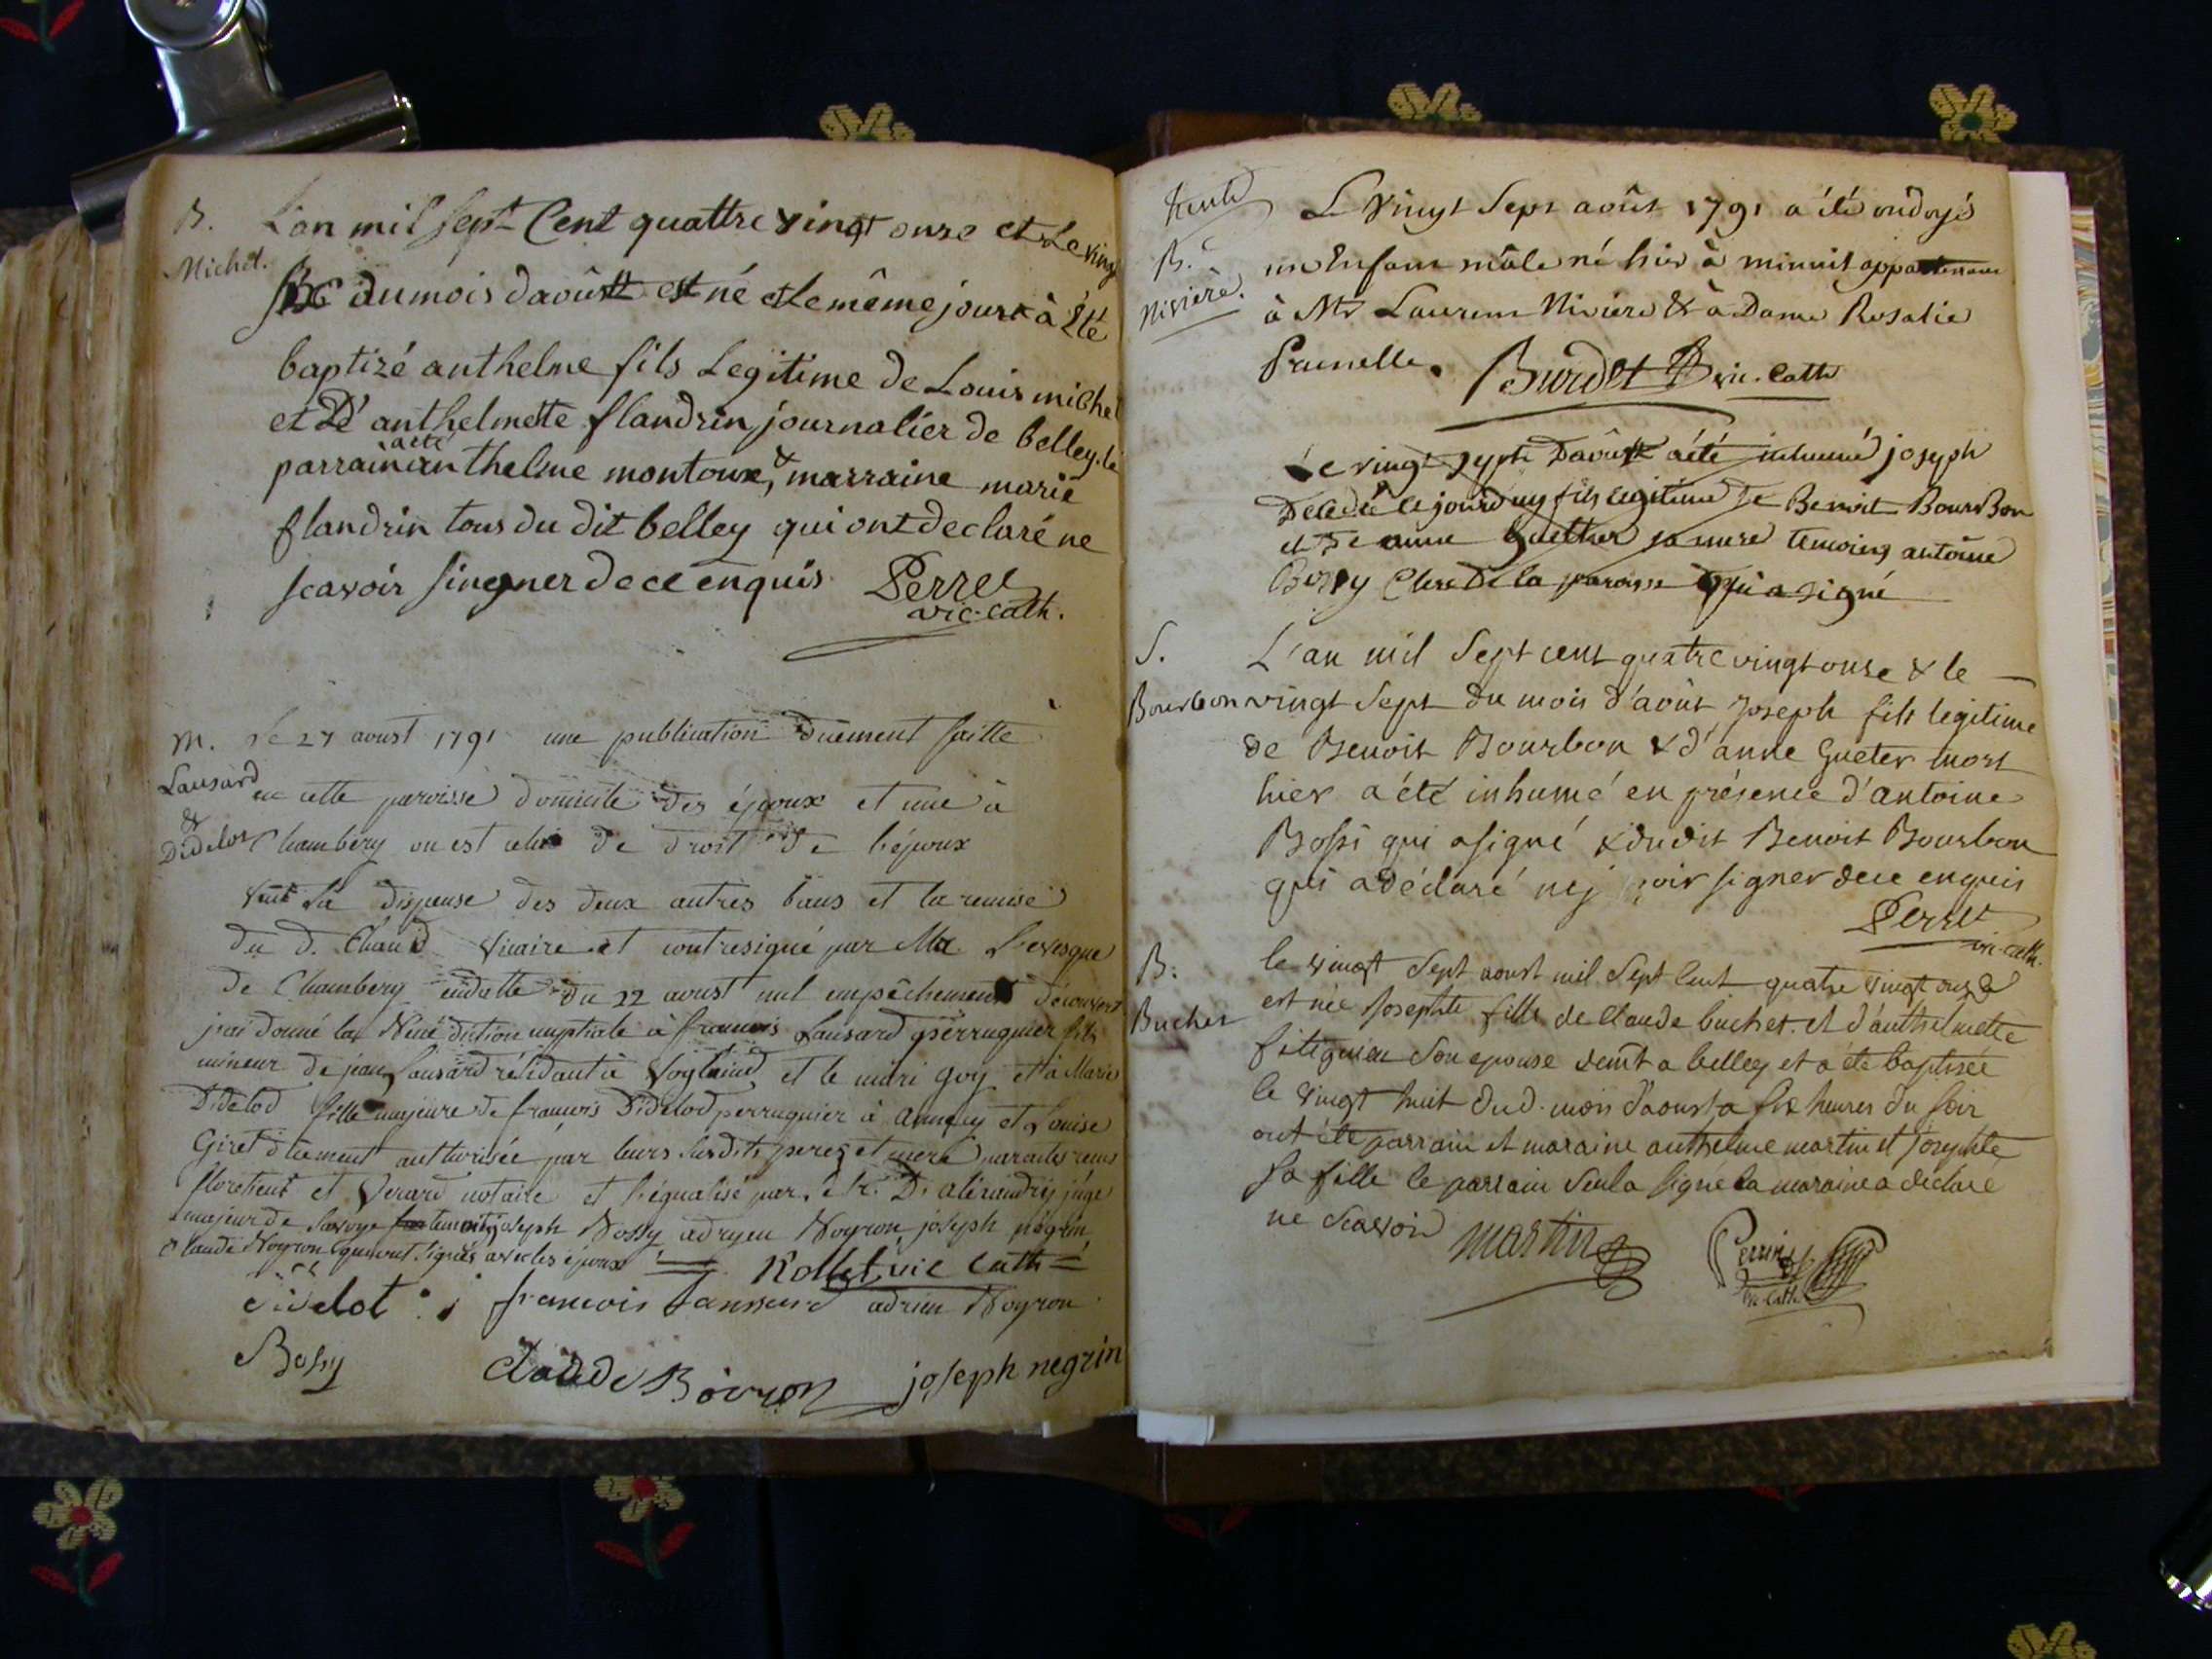 B. L'an mil sept Cent quattre vingt onze et Le vingt
Michel.
six du mois d'aoûstt est né et le même jour à Été
baptizé anthelme fils Legitime de Louis michel
et De anthelmette flandrin journalier de belley. le
parrain a eté anthelme montoux, & marraine marie
flandrin tous du dit belley qui ont declaré ne
scavoir singner de ce enquis Perret
vic. cath.
M. Le 27 aoust 1791 une publication düement faitte
Lansard en cette paroisse domicile des époux et une à
&
Didelot Chambéry ou est celui de droit de l'époux
Vüe La dispense des deux autres bans et la remise
du d. Vicaire et contresigné par Mr L'evesque
de Chambery endatte du 22 aoust nul empêchement découvert
j'ai donné la Béné diction nuptiale à francois Lansard perruquier fils
mineur de jean Lansard résidant à Vogland et le muri goy et à Marie
Didelod fille majeure de francois Didelod perruquier à annecy et Louise
Giret düement authorisée par leurs susdits peres et mere
et Verard notaire et légualisé par juge
majeur de Savoye temoins joseph Bossy adryen Boyron, joseph négrin
Claude Boyron qui ont signés avec les époux Rollet vic Cath
didelot francois Lanssard adrien Boyron
Bossy Claude Boiron joseph negrin
Le Vingt Sept août 1791 a été ondoyé
B.
Nivière.
un Enfant mâle né hier à minuit appartenant
à Mr Laurent Nivière & à Dame Rosalie
Prunelle. Burdet vic. Cath
Le vingt sept D'aoust a été inhumé joseph
Decedé ce jourd'uy fils legitime de Benoit BourBon
et De anne Guether sa mere temoing antoine
Bossy Clerc De la paroisse Qui a signé
S. L'an mil Sept cent quatre vingt onze & le
Bourbon vingt Sept du mois d'août Joseph fils legitime
de Benoit Bourbon & d'anne Gueter mort
hier a été inhumé en présence d'antoine
Bossi qui a signé & dudit Benoit Bourbon
qui a déclaré ne sçavoir signer de ce enquis
Perret
vic. cath.
B. le vingt Sept aoust mil Sept Cent quatre vingt onze
Buchet est née Josephte fille de Claude buchet et d'anthelmette
son epouse demt a belley et a été baptisée
le vingt huit dud. mois d'aoust a six heures du soir
ont été parrain et maraine anthelme martin et josephte
sa fille le parrain seul a signé la maraine a déclaré
ne scavoir martin Perrin
vic. Cath.